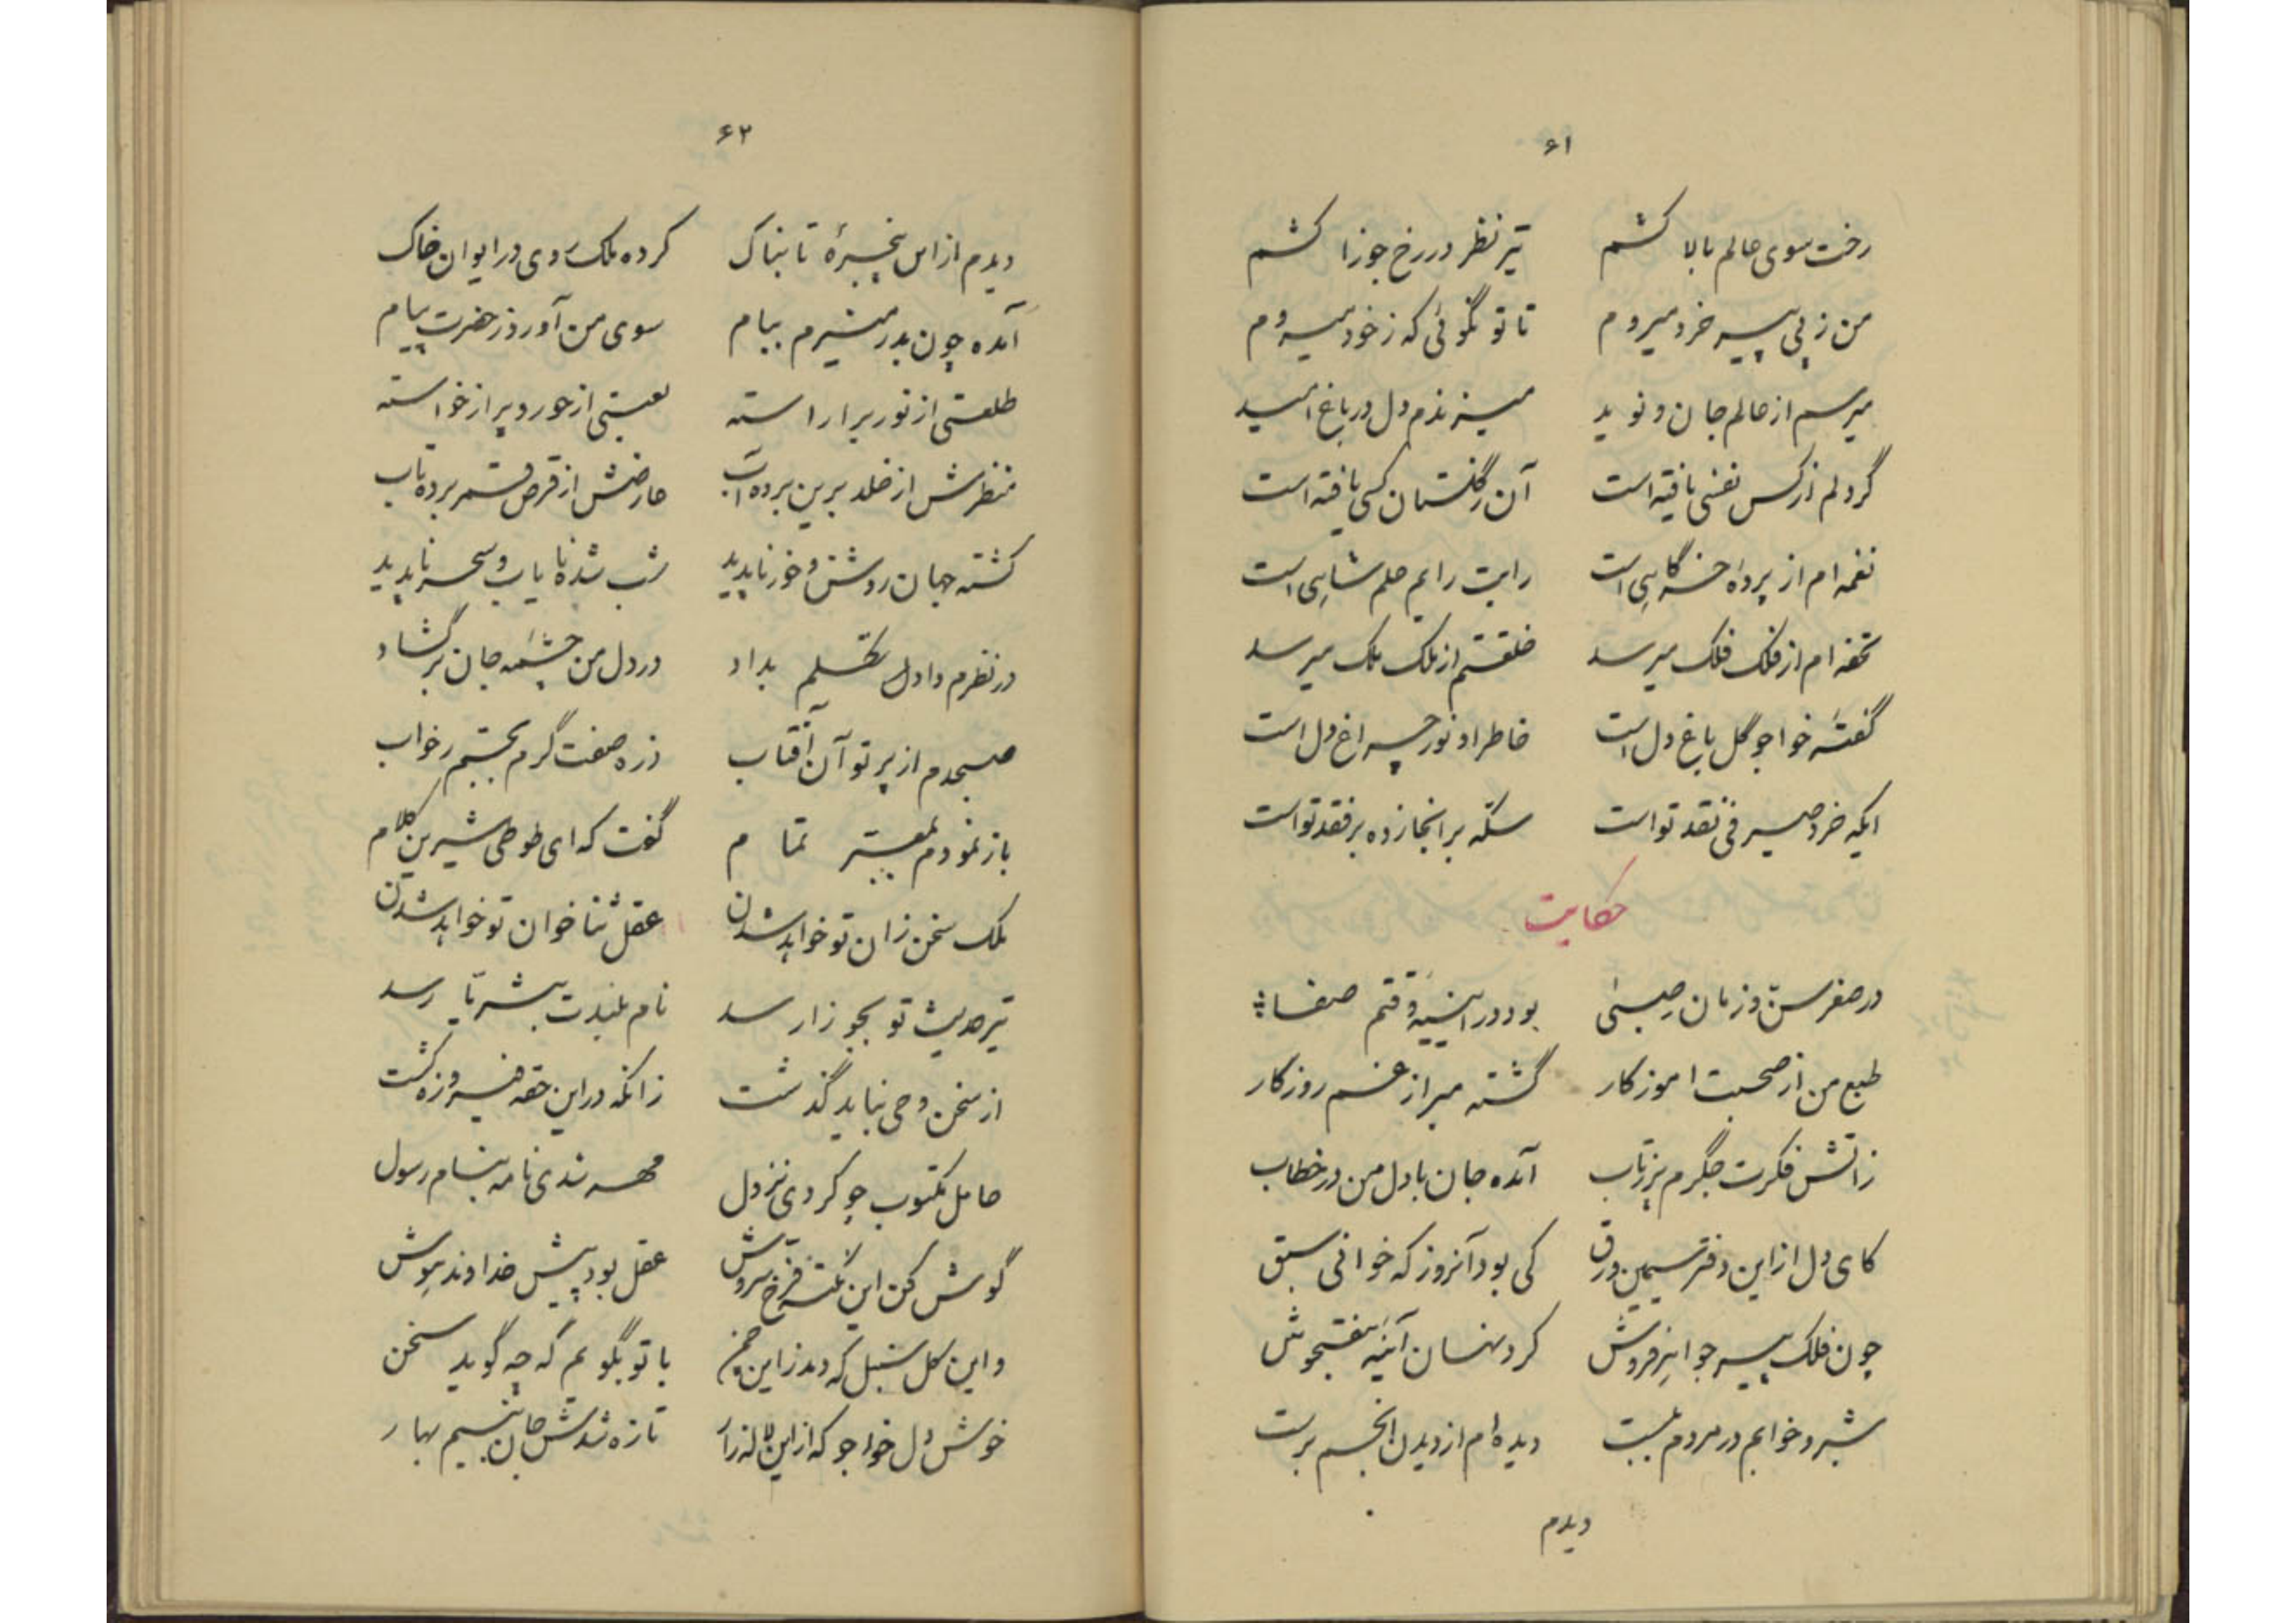 ۶۱
رخت سوی عالم بالا کشم تیر نظر در رخ جوزا کشم
من ز پی پیر خرد میروم تا تو نگوئی که ز خود میروم
میرسم از عالم جان و نوید میزندم دل در باغ امید
گر دلم از کس نفسی یافته است آن ز گلستان کسی یافته است
نغمه ام از پرده خرگاهی است رایت رایم علم شاهی است
تحفه ام از فلک فلک میرسد خلعتم از ملک ملک میرسد
گفته خواجو گل باغ دل است خاطر او نور چراغ دل است
ایکه خرد صیرفی نقد تو است سکه بر انجا زده بر فقد تو است
حکایت
در صغر سن و زمان صبی بود در آیینه وقتم صفا
طبع من از صحبت اموزکار گشته مبرا ز غم روزکار
زاتش فکرت جگرم پر ز تاب آمده جان با دل من در خطاب
کای دل از این دفتر سیمین ورق کی بود آنروز که خوانی سبق
چون فلک پیر جواهر فروش کرد نهان آینه هفتجوش
شبرو خوابم در مردم ببست دیده ام از دیدن انجم برست
دیدم
۶۲
دیدم از این پنجره تابناک کرده ملک روی در ایوان خاک
آمده چون بدر منیرم ببام سوی من آورد ز حضرت پیام
طلعتی از نور برآراسته لعبتی از حور و پر از خواسته
منظرش از خلد برین برده آب عارضش از قرص قمر برده تاب
کشته جهان روشن و خور ناپدید شب شده نایاب و سحر ناپدید
در نظرم داد دل بداد در دل من چشمه جان برگشاد
صبحدم از پرتو آن آفتاب ذره صفت گرم بجستم ز خواب
باز نمودم بمعبر تمام گفت که ای طوطی شیرین کلام
ملک سخن زان تو خواهد شدن عقل ثنا خوان تو خواهد شدن
تیر حدیث تو بجوزا رسد نام بلندت بثریا رسد
از سخن وحی نباید گذشت زانکه در این حقه فیروزه گشت
حامل مکتوب چو کردی نزول مهر ندی نامه بنام رسول
گوش کن این نکته فرخ سروش عقل بود پیش خداوند هوش
و این کل سنبل که دمد زاین چمن با تو بگویم که چه گوید سخن
خوش دل خواجو که از این لاله زار تازه شدش جان بنسیم بهار